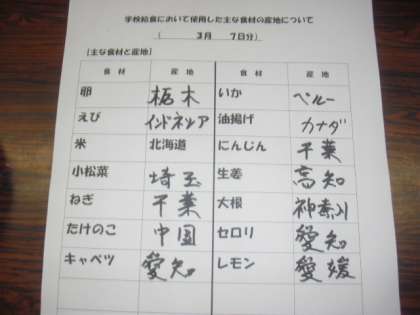 学校給食において使用した主な食材の産地について
( 3月 7日分)
[主な食材と産地]
食材 産地 食材 産地
卵 栃木 いか ペルー
えび インドネシア 油揚げ カナダ
米 北海道 にんじん 千葉
小松菜 埼玉 生姜 高知
ねぎ 千葉 大根 神奈川
たけのこ 中国 セロリ 愛知
キャベツ 愛知 レモン 愛媛